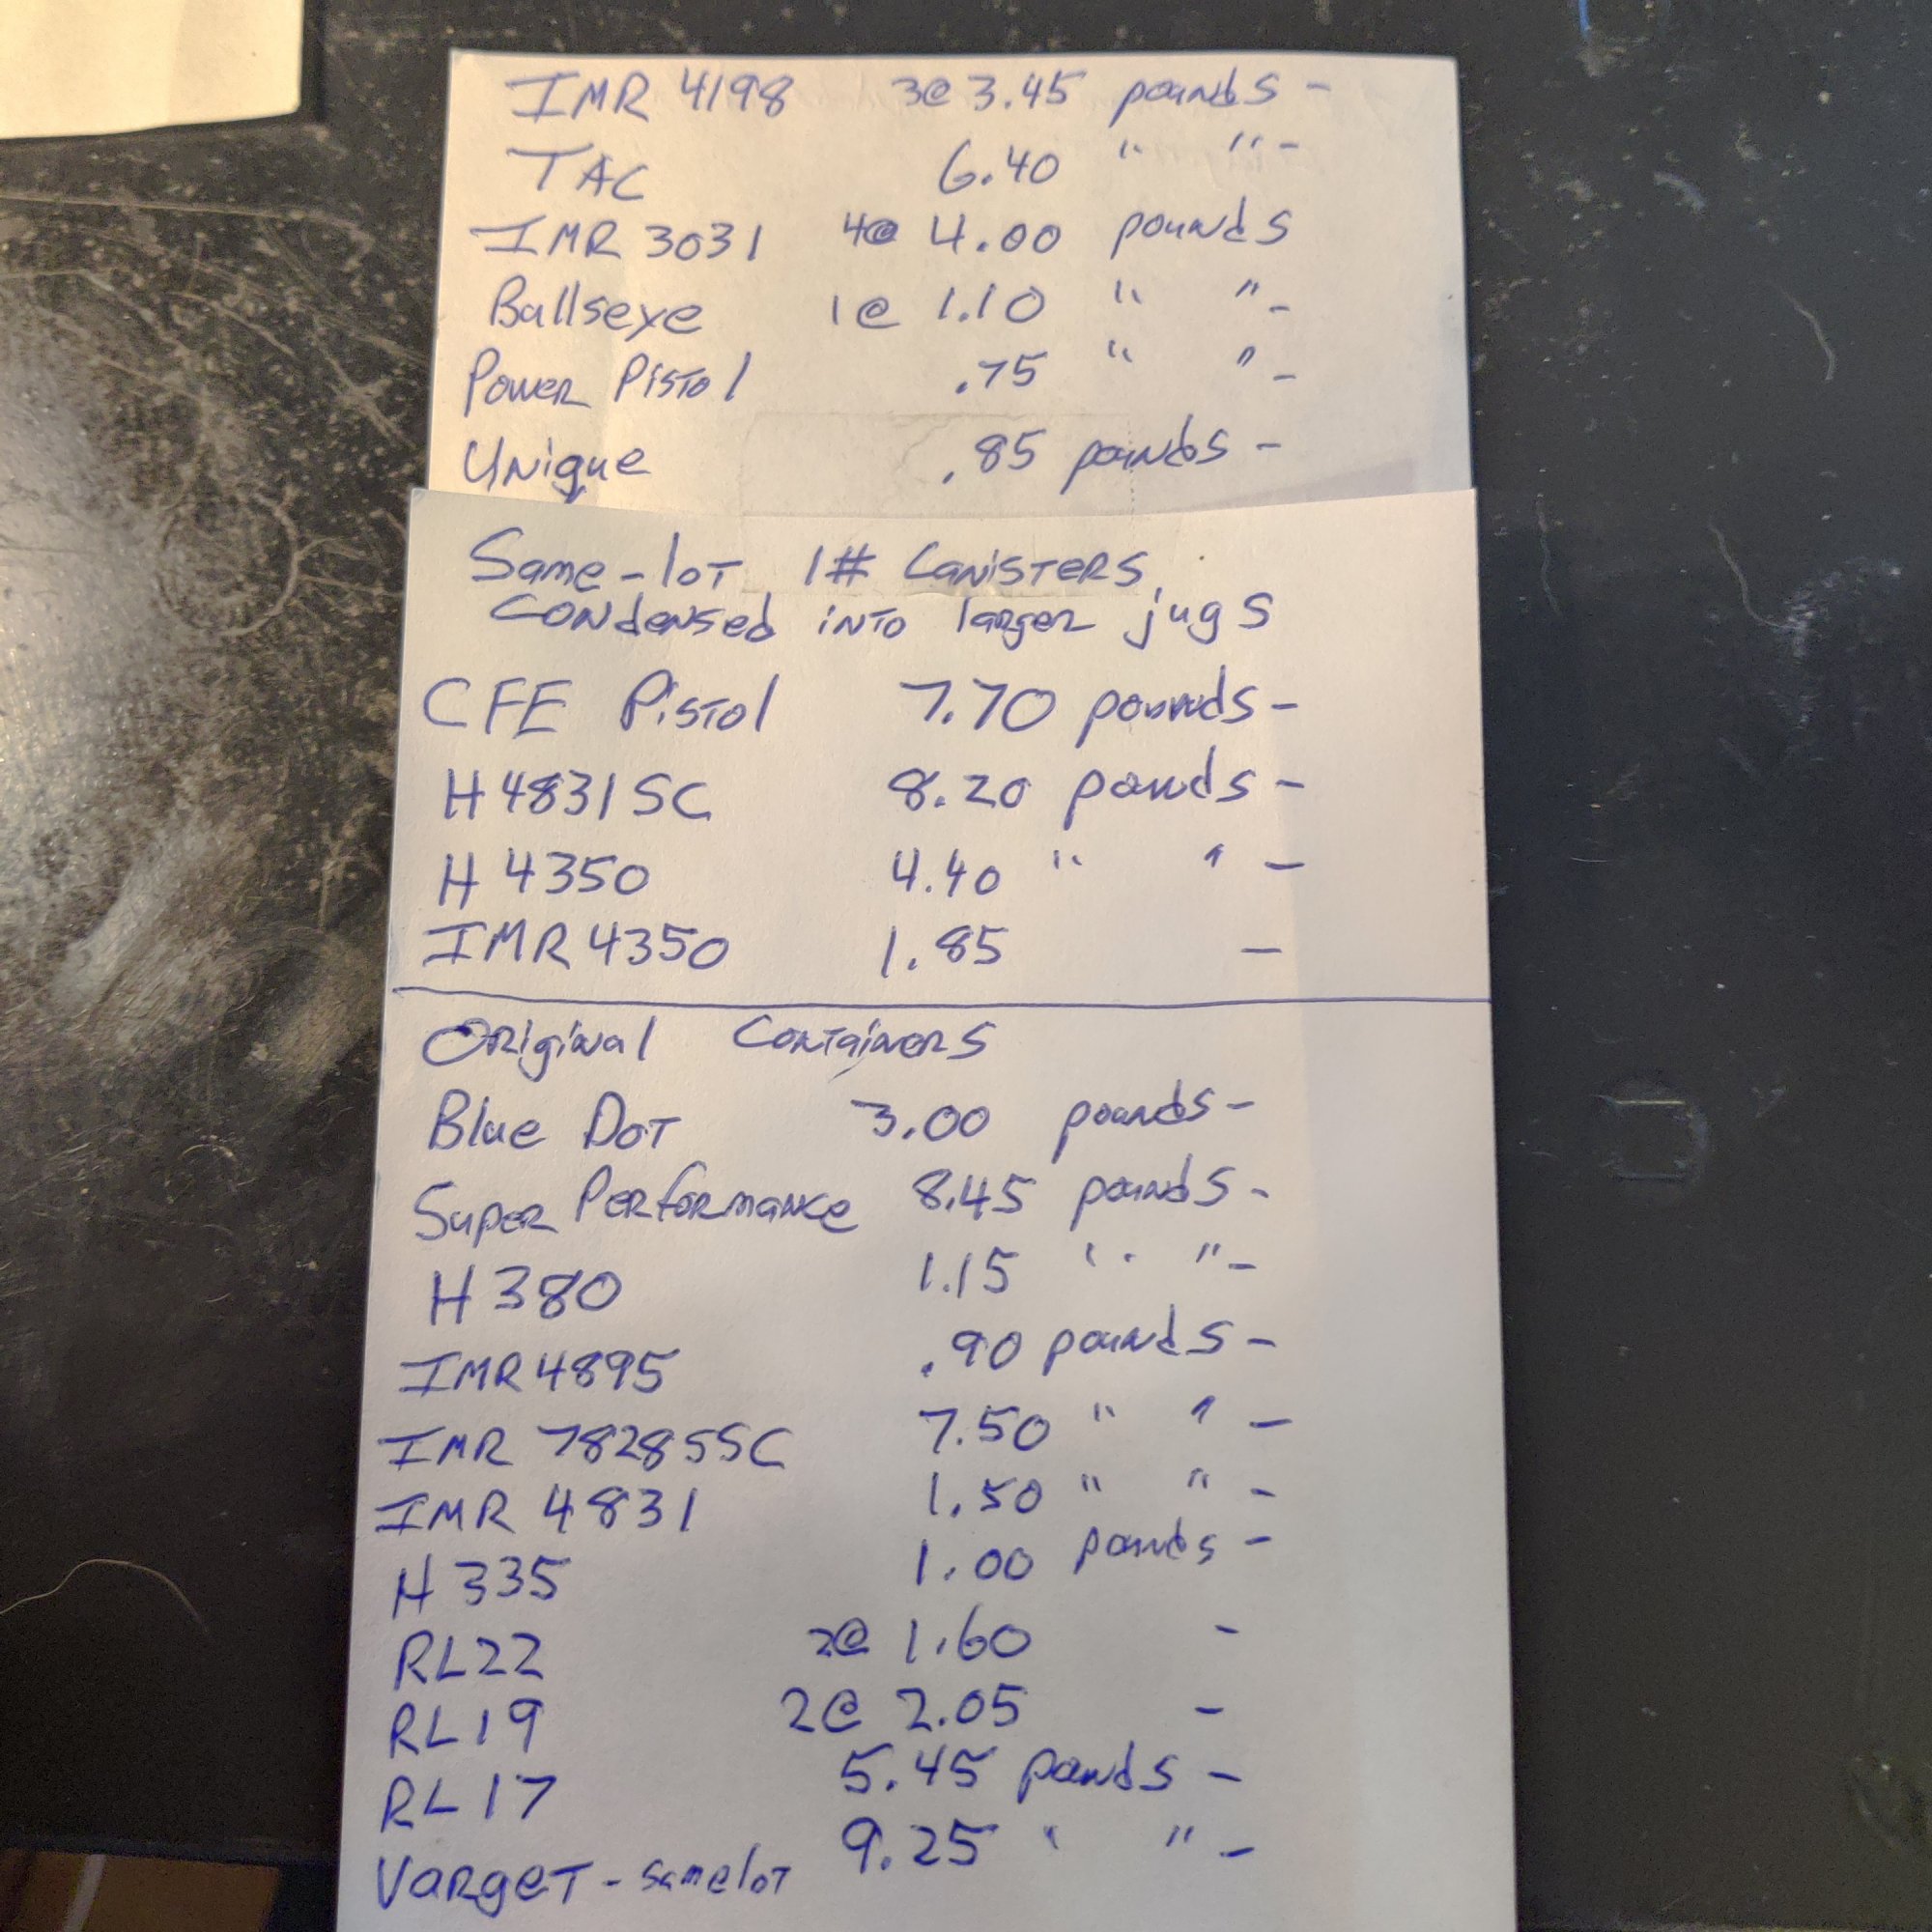 IMR 4198 3@ 3.45 pounds -
TAC 6.40 " " -
IMR 3031 4@ 4.00 pounds
Ballseye 1@ 1.10 " " -
Power Pistol .75 " " -
Unique .85 pounds -
Same-lot 1# Canisters
Condensed into larger jugs
CFE Pistol 7.70 pounds -
H4831SC 8.20 pounds -
H 4350 4.40 " " -
IMR 4350 1.85 -
Original Containers
Blue Dot 3.00 pounds -
Super Performance 8.45 pounds -
H 380 1.15 " " -
IMR 4895 .90 pounds -
IMR 78285SC 7.50 " " -
IMR 4831 1.50 " " -
H 335 1.00 pounds -
RL22 2@ 1.60 -
RL19 2@ 2.05 -
RL17 5.45 pounds -
Varget - samelot 9.25 " " -